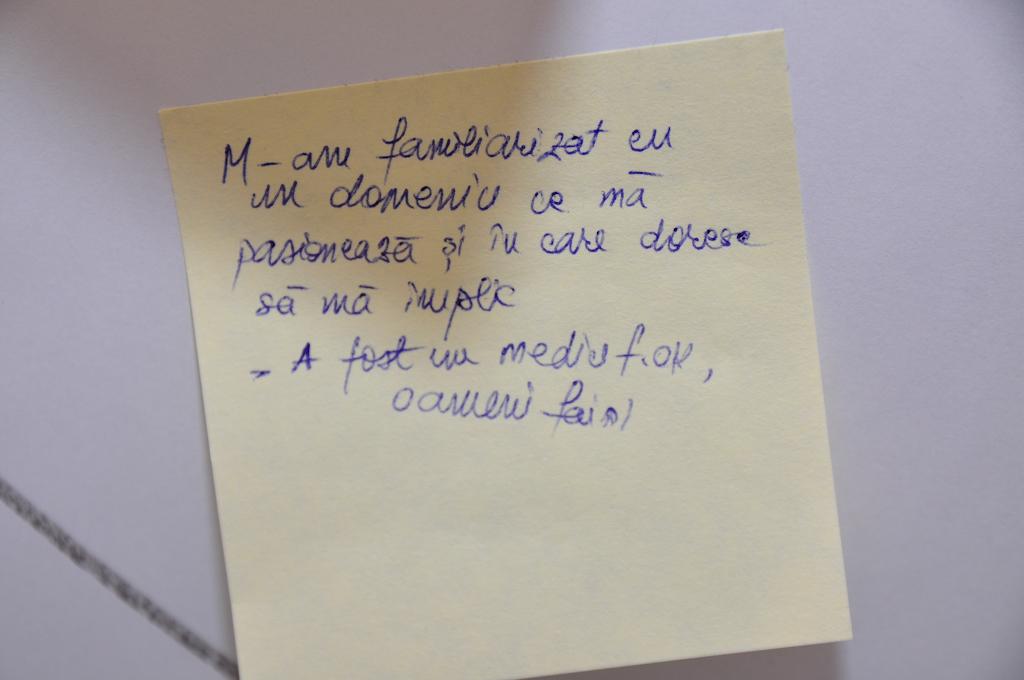 M-am familiarizat cu
un domeniu ce mă
pasionează și în care doresc
să mă implic
- A fost un mediu f. ok,
oameni faini